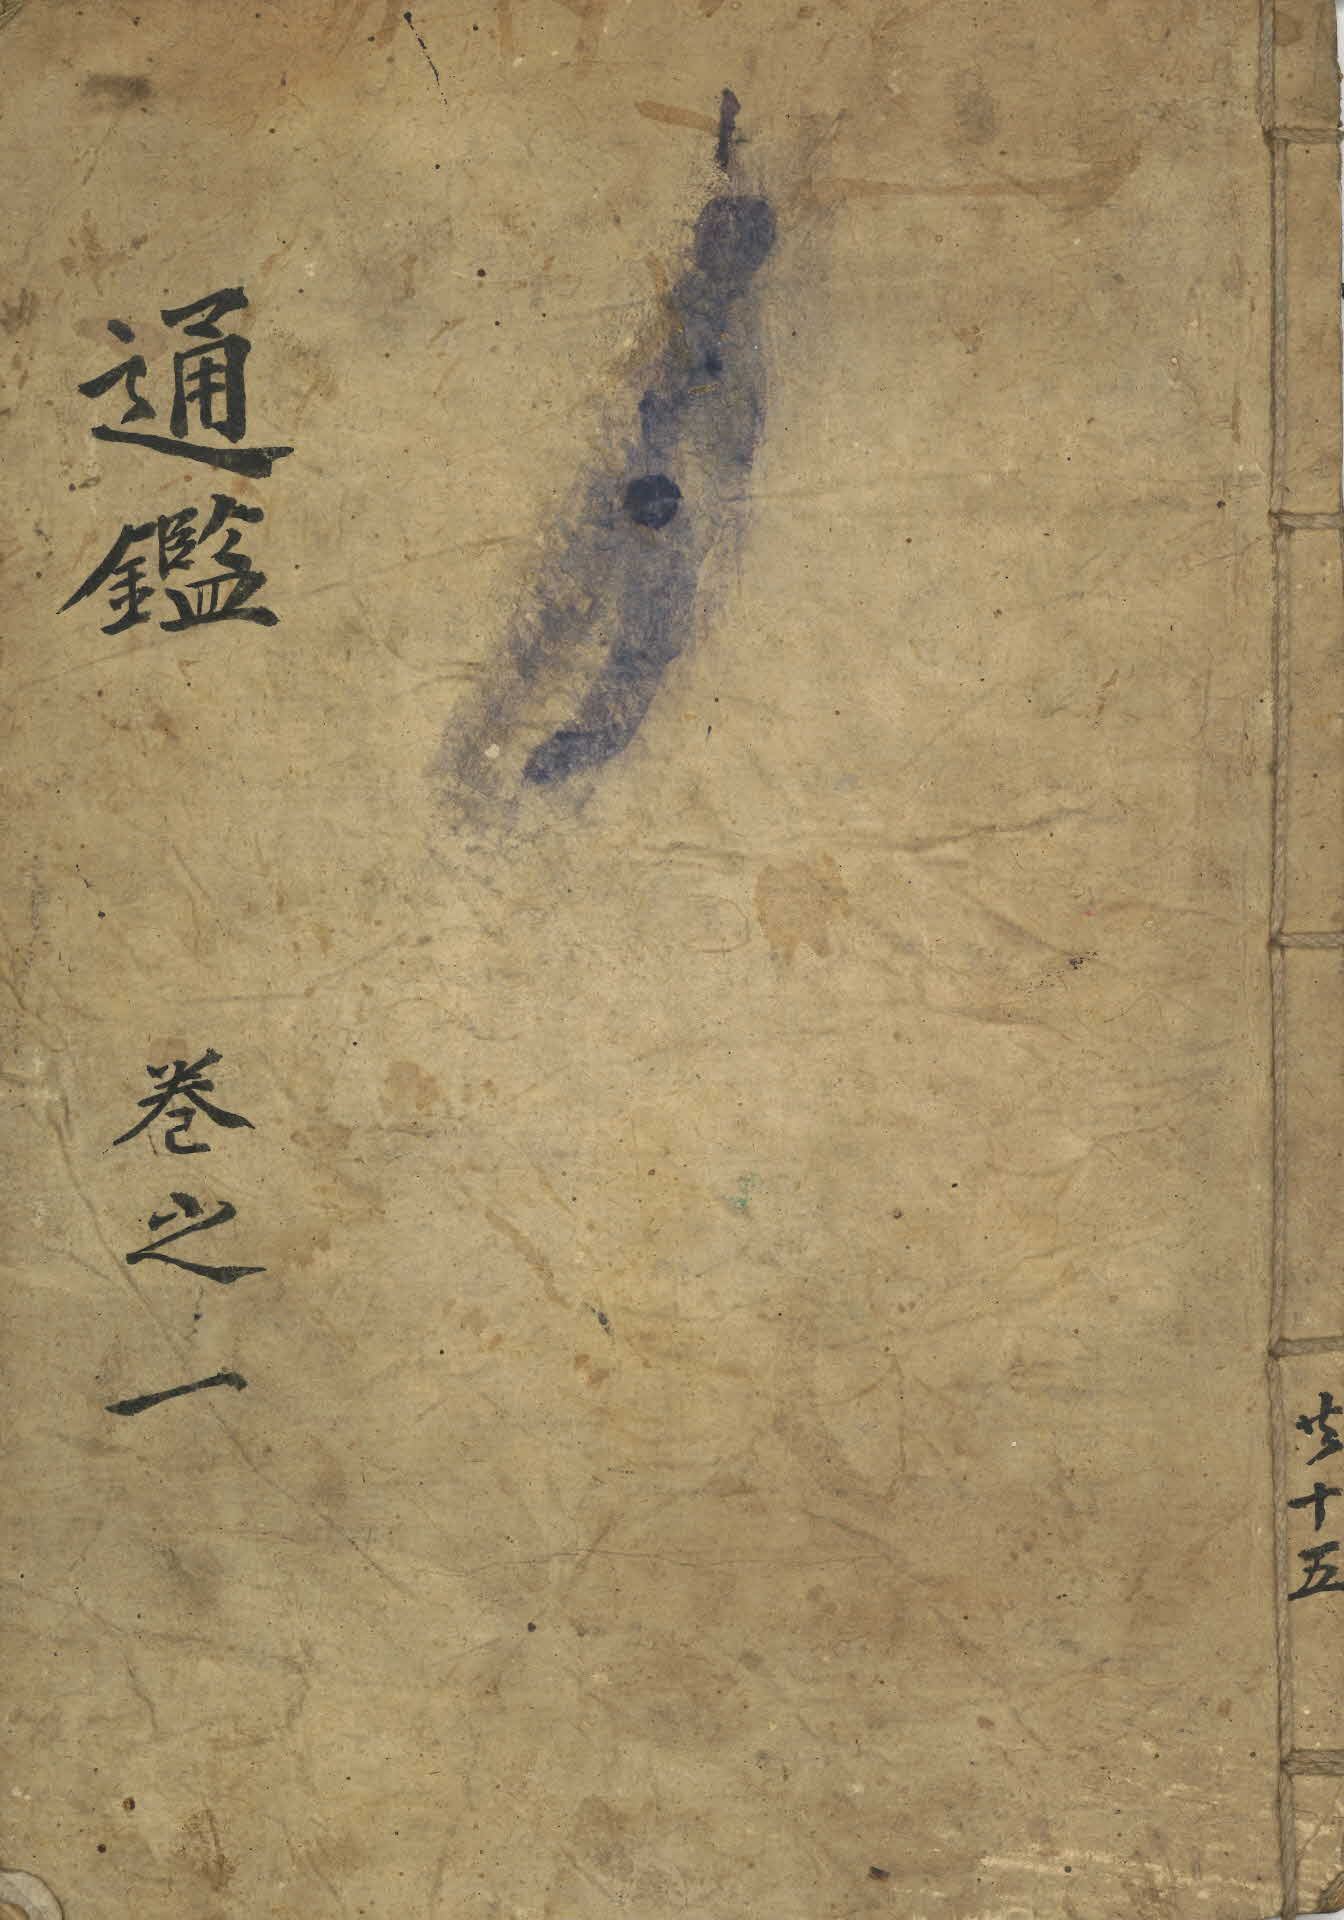 通鑑 卷之一
共十五